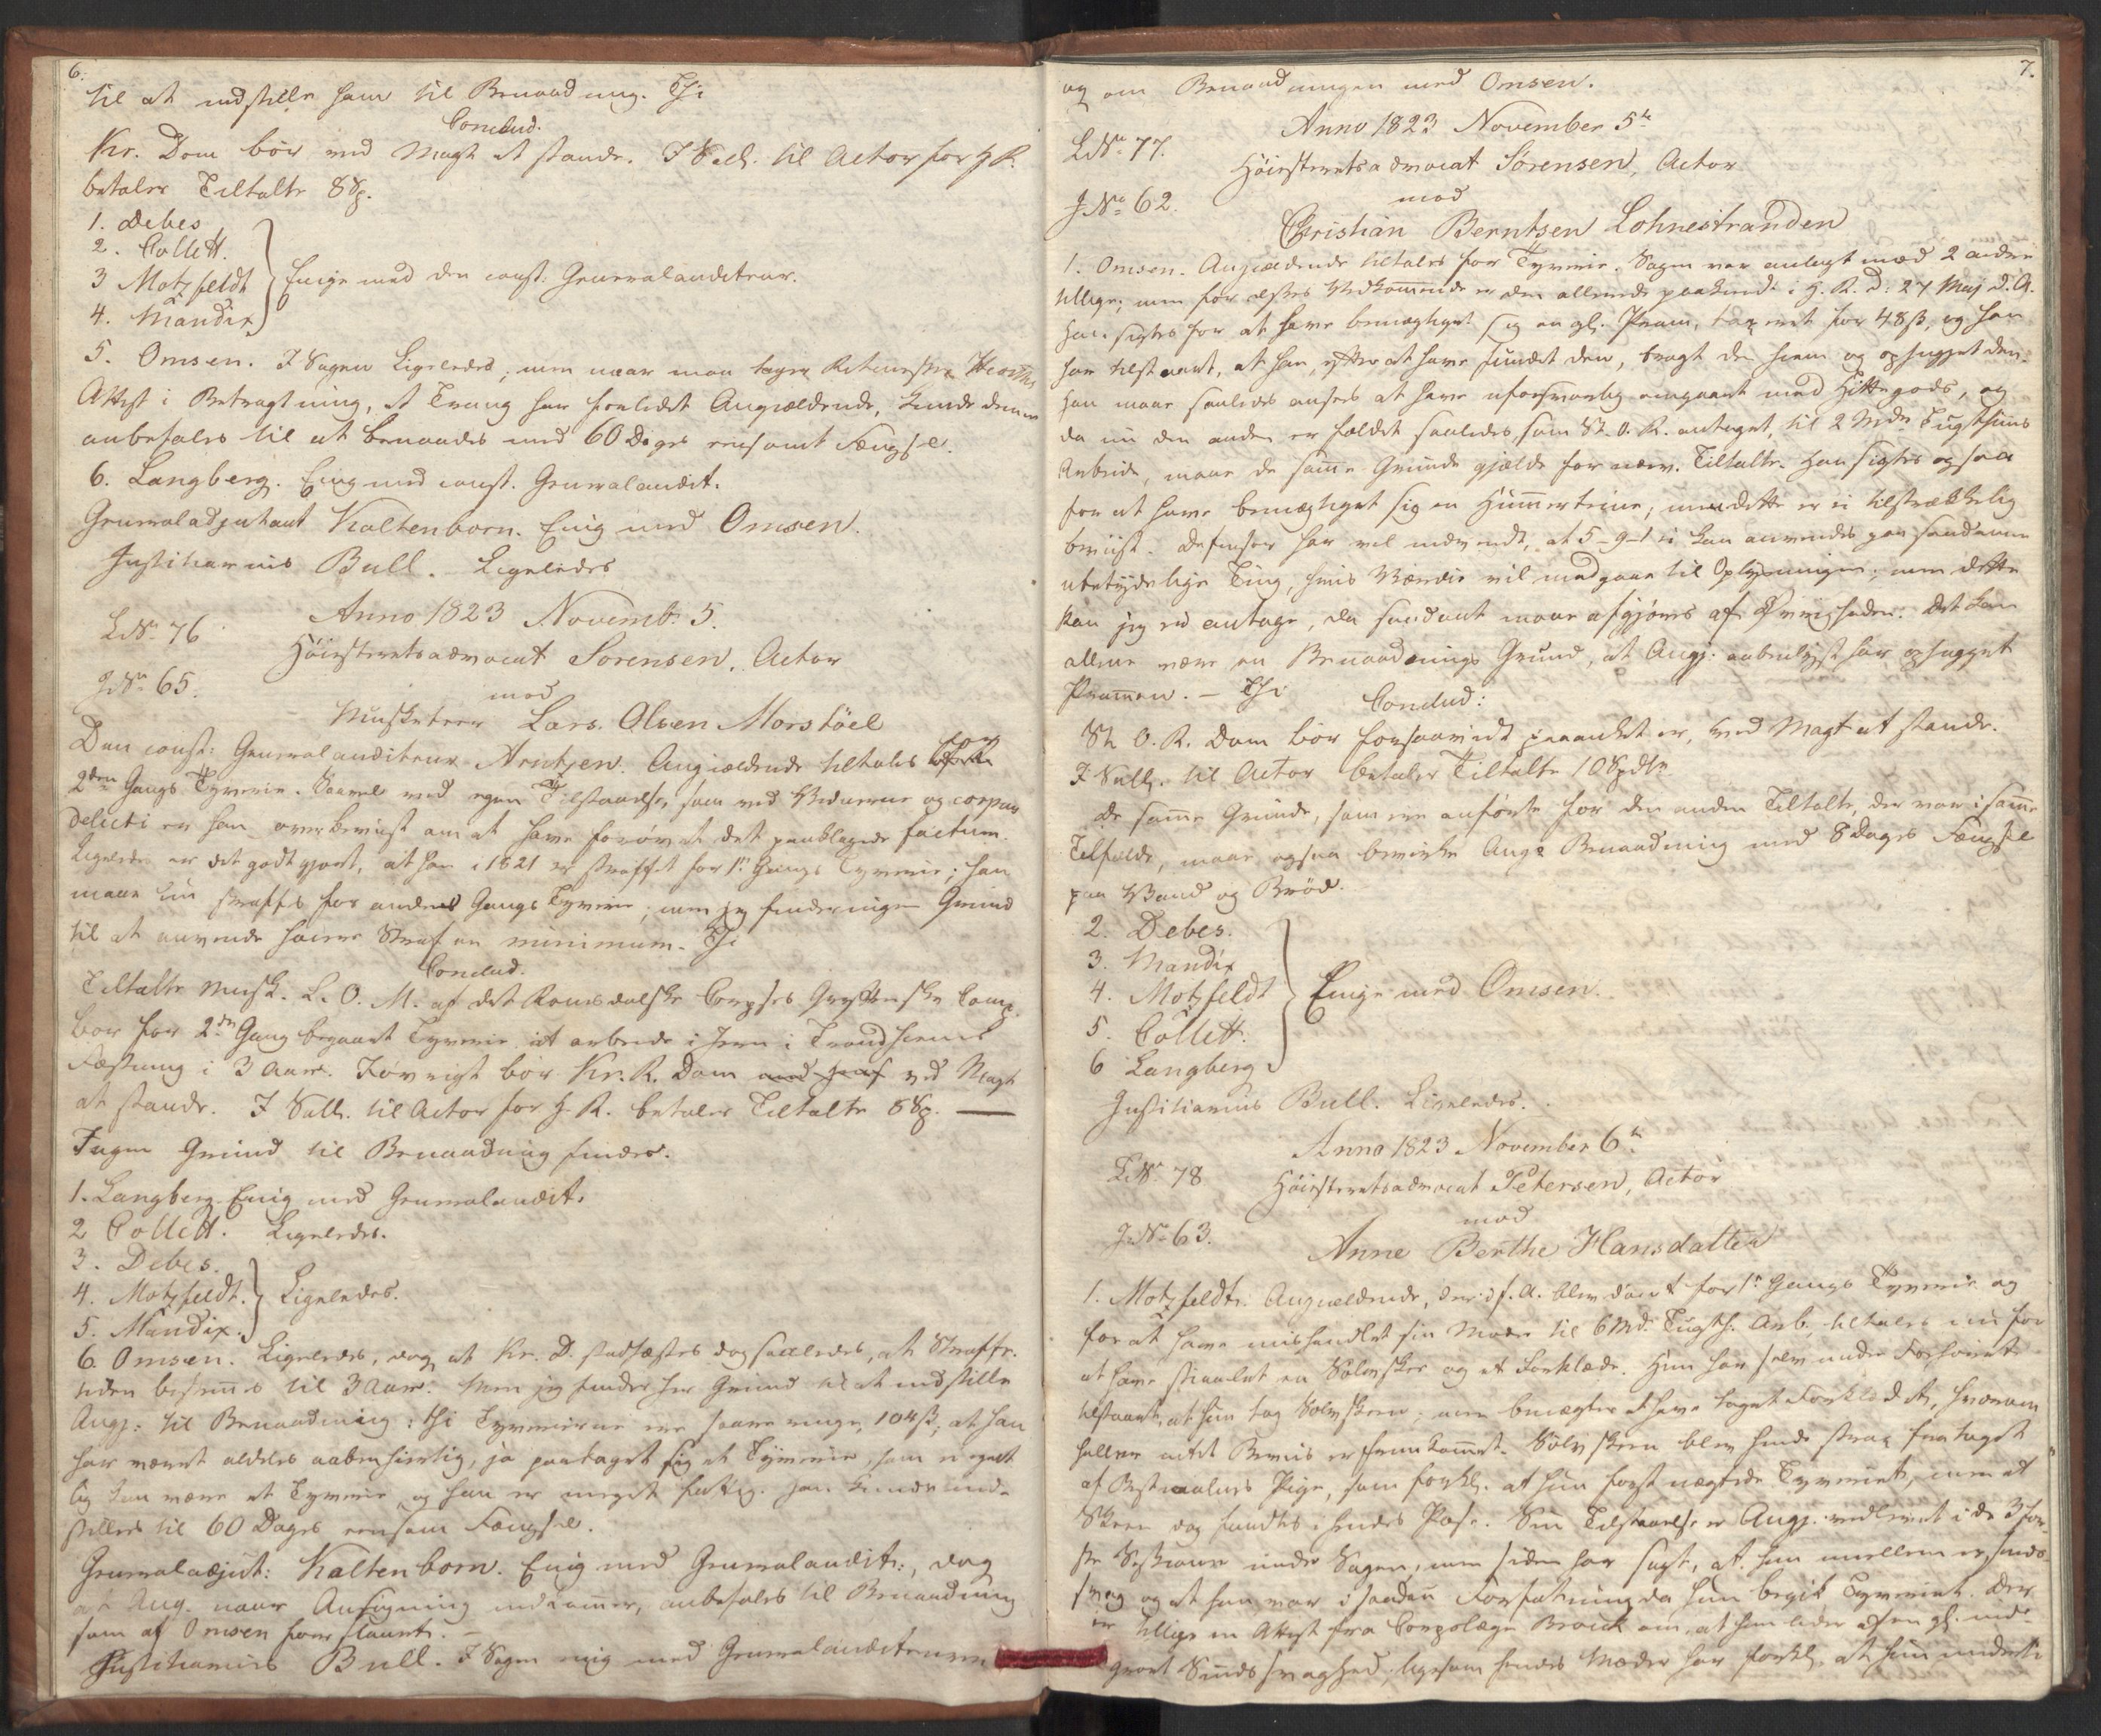 6.
til at indstille ham til Benaadning. Thi
Conclud.
Kr. Dom bør ved Magt at stande. I Sall. til Actor for H. R.
betaler Tiltalte 8 Sp.
1. Debes
2. Collett.
3 Motzfeldt
4. Mandix
Enige med den const. Generalauditeur.
5. Omsen. I Sagen Ligeledes; men naar man tager
Attest i Betragtning, at Trang har forledet Angjældende, kunde denne
anbefales til at benaades med 60 Dages eensomt Fængsel.
6. Langberg. Enig med const. Generalaudit.
Generaladjutant Kaltenborn. Enig med Omsen.
Justitiarius Bull. Ligeledes
Anno 1823 Novemb. 5.
L. No 76
Høiesteretsadvocat Sørensen, Actor
J. No 65.
mod
Musketeer Lars Olsen Morstöel
Den const: Generalauditeur Arntzen. Angjældende tiltales for
2den Gangs Tyverie. Saavel ved egen Tilstaaelse som ved Vidnerne og corpus
delicti er han overbeviist om at have forøvet det paaklagede factum.
Ligeledes er det godtgjort, at han i 1821 er straffet for 1ste Gangs Tyverie; han
maa nu straffes for anden Gangs Tyverie, men jeg finder ingen Grund
til at anvende høiere Straf en minimum. Thi
Conclud.
Tiltalte Musk. L. O. M. af det Romsdalske Corpses Gryttenske Comp.
bør for 2den Gang begaaet Tyverie at arbeide i Jern i Trondhiems
Fæstning i 3 Aar. Iøvrigt bør Kr. R. Dom ved Magt
at stande. I Sall. til Actor for H. R. betaler Tiltalte 8 Sp. —
Ingen Grund til Benaadning findes.
1. Langberg. Enig med Generalaudit.
2 Collett. Ligeledes.
3. Debes.
4. Motzfeldt.
5. Mandix.
Ligeledes.
6. Omsen. Ligeledes, dog at Kr. D. stadfæstes dog saaledes, at Straffe-
tiden bestemes til 3 Aar. Men jeg finder her Grund til at indstille
Angj. til Benaadning: thi Tyverierne ere saare ringe, 104 ß, at han
har været aldeles aabenhiertig, ja paataget sig et Tyverie, som ei egent
lig kan være et Tyverie og han er meget fattig. Han kunde ind-
stilles til 60 Dages eensom Fængsel.
Generaladjut: Kaltenborn. Enig med Generalaudit:, dog
at Ang. naar Ansøgning indkommer, anbefales til Benaadning
som af Omsen foreslaaet. -
Justitiarius Bull. I Sagen enig med Generalauditeuren
7.
og om Benaadningen med Omsen.
Anno 1823 November 5te
L. No 77.
Høiesteretsadvocat Sørensen, Actor
J. No 62.
mod
Christian Berntsen Lohnestranden
1. Omsen. Angjældende tiltales for Tyverie. Sagen var anlagt mod 2 andre
tillige; men for disses Vedkommende er den allerede paakiendt i H. R. d. 27 Maj d. A.
Han sigtes for at have bemægtiget sig en gl. Pram, taxeret for 48 ß, og han
har tilstaaet, at han, efter at have fundet den, bragt den hiem og ophugget den.
Han maae saaledes ansees at have uforsvarlig omgaaet med Hittegods, og
da nu den anden er fældet saaledes, som St. O. R. antaget, til 2 Mdr Tugthuus
Arbeide, maae de samme Grunde gjælde for nærv. Tiltalte. Han sigtes ogsaa
for at have bemægtiget sig en Hummerteine, men dette er ei tilstrækkelig
beviist. Defensor har vel indvendt, at 5-9-1 ei kan anvendes paa saadanne
ubetydelige Ting, hvis Værdie vil medgaae til Oplysningen; men dette
kan jeg ei antage, da saadant maae afgjøres af Øvrigheden. Det kan
allene være en Benaadnings Grund, at Angj. aabenlyst har ophugget
Prammen. - Thi
Conclud:
St. O. R. Dom bør forsaavidt paaanket er, ved Magt at stande.
I Sall. til Actor betaler Tiltalte 10 Spdlr
De samme Grunde, som ere anførte for den anden Tiltalte, der var i samme
Tilfælde, maae ogsaa bevirke Angj. Benaadning med 8 Dages Fængsel
paa Vand og Brød.
2. Debes.
3. Mandix
4. Motzfeldt
5. Collett.
6 Langberg
Enige med Omsen.
Justitiarius Bull. Ligeledes.
Anno 1823 November 6te
L. No 78
Høiesteretsadvocat Petersen, Actor
J. No 63.
mod
Anne Berthe Hansdatter
1. Motzfeldt. Angjældende, der i f. A. blev dømt for 1ste Gangs Tyverie og
for at have mishandlet sin Moder til 6 Md. Tugth. Arb., tiltales nu for
at have stiaalet en Sølvskee og et Forklæde. Hun har selv under Forhøret
tilstaaet, at hun tog Sølvskeen; men benægter at have taget Forklædet, hvorom
heller intet Beviis er fremkommet. Sølvskeen blev hende strax frataget
af Bestiaalnes Pige, som forkl. at hun først nægtede Tyveriet, men at
Skeen dog fandtes i hendes Pose. Sin Tilstaaelse er Angj. vedblevet i de 3 før-
ste Sessioner under Sagen, men siden har sagt, at hun imellem er sinds-
svag og at hun var i saadan Forfatning da hun begik Tyveriet. Der
er tillige en Attest fra Corpslæge Brock om, at hun lider af en gl. ind-
groet Sindssvaghed, ligesom hendes Moder har forkl. at hun underti